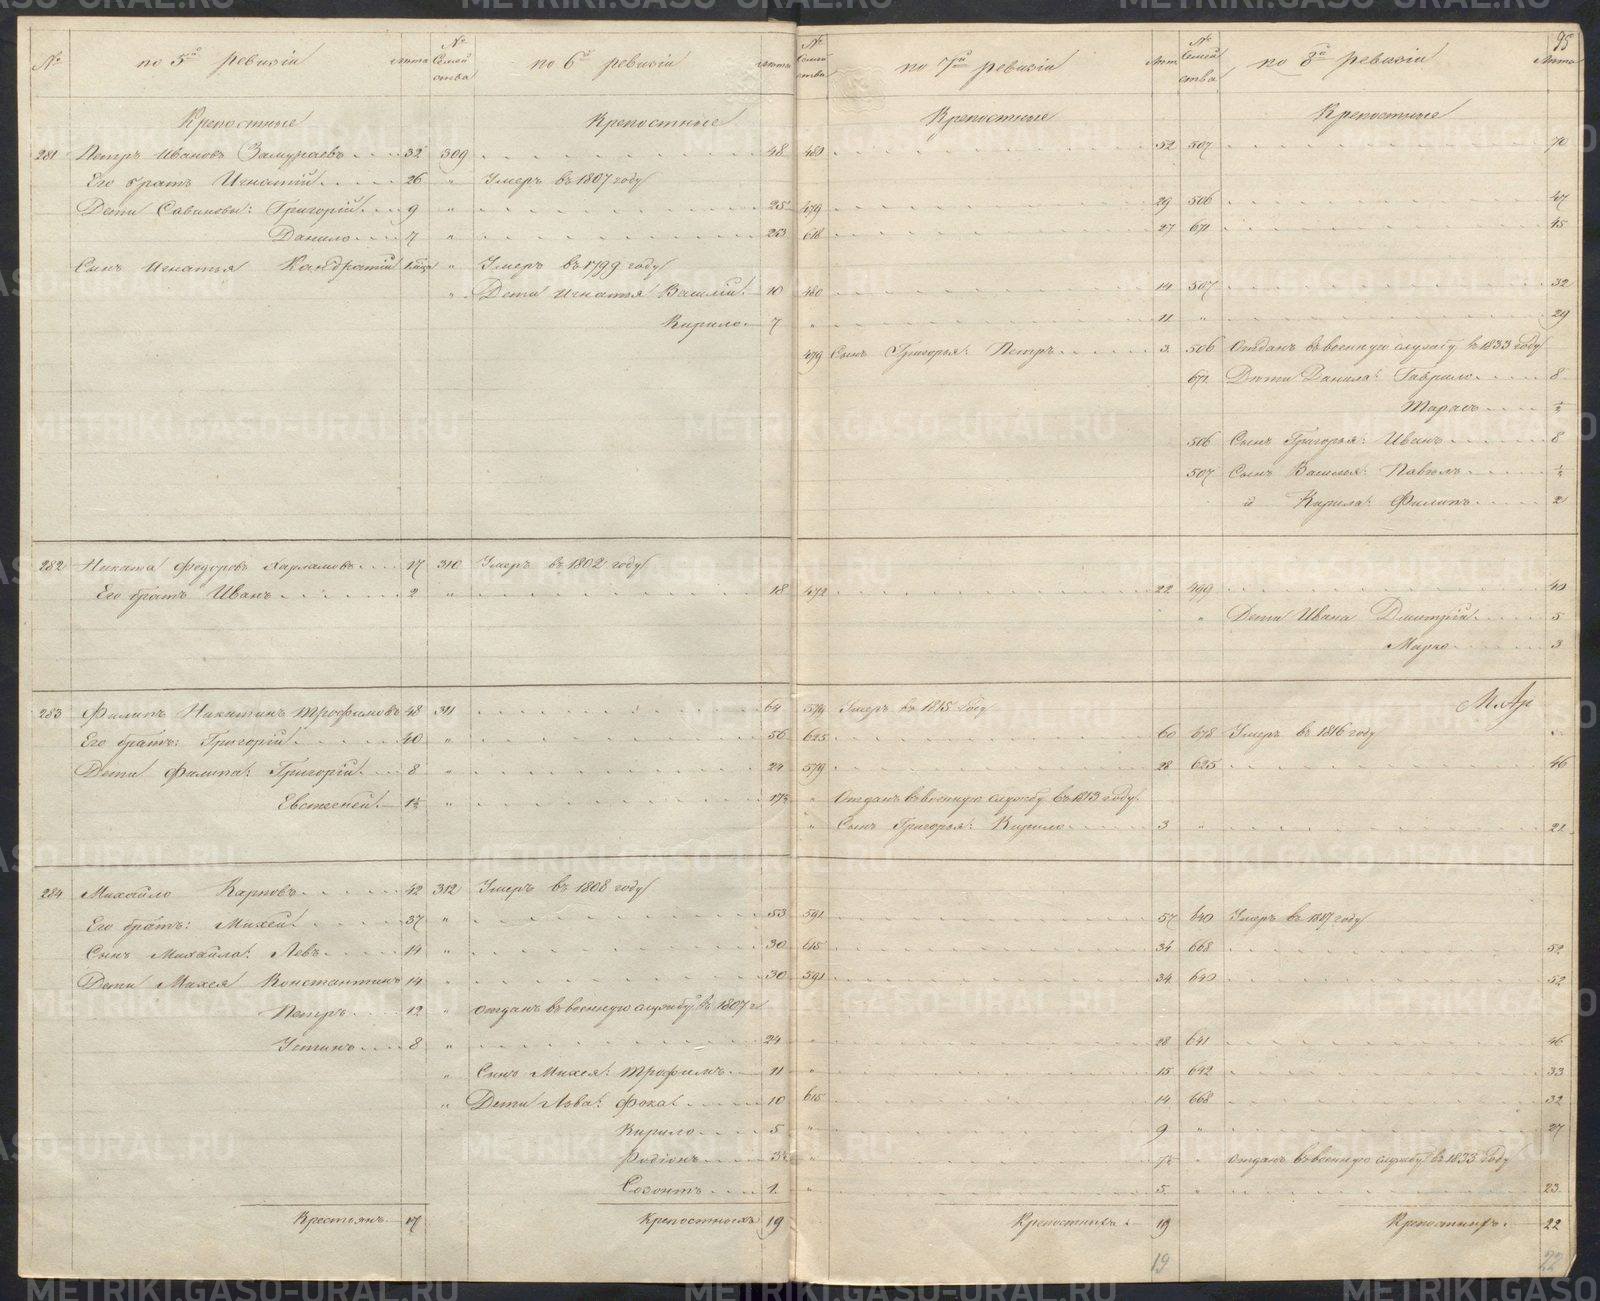 95
№ по 5й ревизіи лѣта № Семейства по 6й ревизіи лѣта № Семейства по 7й ревизіи лѣт № Семейства по 8й ревизіи лѣта
Крепостные Крепостные Крепостные Крепостные
281 Петръ Ивановъ 32 309 48 480 52 507 70
Его братъ Игнатій 26 " Умеръ въ 1807 году
Дети Савиновы: Григорій 9 " 25 479 29 506 47
Данило 7 " 23 618 27 671 45
Сынъ Игнатья Кондратій " Умеръ въ 1799 году
" Дети Игнатья Василій 10 480 14 507 32
Кирило 7 " 11 " 29
479 Сынъ Григорья: Петръ 3 506 Отданъ въ военную службу въ 1833 году
671 Дѣти Данила: Гаврило 8
Тарасъ ½
506 Сынъ Григорья: Иванъ 8
507 Сынъ Василья: Павелъ ½
и Кирила: Филипъ 2
282 Никита Федоровъ Харламовъ 17 310 Умеръ въ 1802 году
Его братъ Иванъ 2 " 18 472 22 499 40
" Дети Ивана Дмитрій 5
Марко 3
283 Филипъ Никитинъ Трофимовъ 48 311 64 579 Умеръ въ 1815 году
Его братъ: Григорій 40 " 56 625 60 678 Умеръ въ 1816 году
Дети Филипа: Григорій 8 " 24 579 28 625 46
Евстегней 1½ " 17½ " Отданъ въ военную службу въ 1813 году
" Сынъ Григорья: Кирило 3 " 21
284 Михайло Карповъ 42 312 Умеръ въ 1808 году
Его братъ: Михей 37 " 53 591 57 640 Умеръ въ 1817 году
Сынъ Михайла: Левъ 14 " 30 615 34 668 52
Дети Михея Константинъ 14 " 30 591 34 640 52
Петръ 12 " Отданъ въ военную службу въ 1807 г
Устинъ 8 " 24 " 28 641 46
" Сынъ Михея: Трофимъ 11 " 15 642 33
" Дети Льва: Фока 10 615 14 668 32
Кирило 5 " 9 " 27
Родіонъ 3½ " 7½ Отданъ въ военную службу въ 1833 году
Созонтъ 1 " 5 " 23
Крестьянъ 17 Крепостныхъ 19 Крепостныхъ 19 Крепостныхъ 22
19 22
METRIKI.GASO-URAL.RU